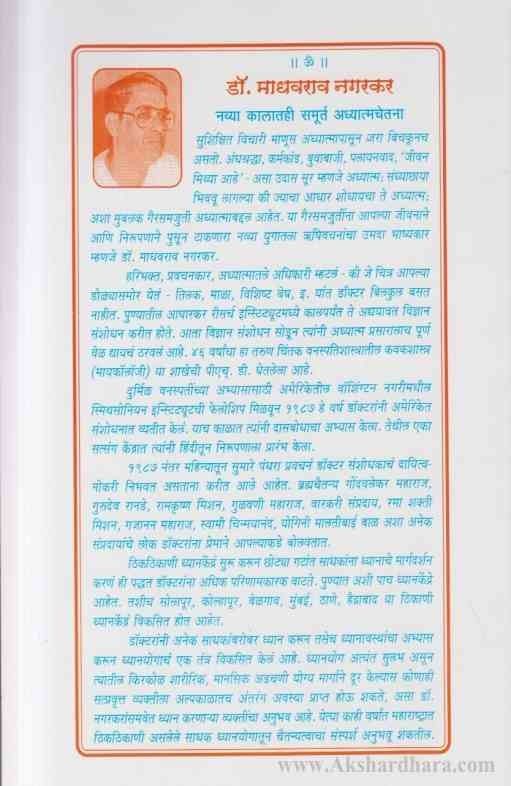 ॥ ॐ ॥
डॉ. माधवराव नगरकर
नव्या कालातही समूर्त अध्यात्मचेतना
सुशिक्षित विचारी माणूस अध्यात्मापासून जरा बिचकूनच
असतो. अंधश्रद्धा, कर्मकांड, बुवाबाजी, पलायनवाद, 'जीवन
मिथ्या आहे' - असा उदास सूर म्हणजे अध्यात्म; संध्याछाया
भिववू लागल्या की ज्याचा आधार शोधायचा ते अध्यात्म;
अशा मुबलक गैरसमजुती अध्यात्माबद्दल आहेत. या गैरसमजुतींना आपल्या जीवनाने
आणि निरूपणाने पुसून टाकणारा नव्या युगातला ऋषिवचनांचा उमदा भाष्यकार
म्हणजे डॉ. माधवराव नगरकर.
हरिभक्त, प्रवचनकार, अध्यात्मातले अधिकारी म्हटलं - की जे चित्र आपल्या
डोळ्यासमोर येतं - तिलक, माळा, विशिष्ट वेष, इ. यांत डॉक्टर बिलकुल बसत
नाहीत. पुण्यातील आघारकर रीसर्च इन्स्टिट्यूटमध्ये कालपर्यंत ते अद्ययावत विज्ञान
संशोधन करीत होते. आता विज्ञान संशोधन सोडून त्यांनी अध्यात्म प्रसारालाच पूर्ण
वेळ द्यायचं ठरवलं आहे. ४६ वर्षांचा हा तरुण चिंतक वनस्पतिशास्त्रातील कवकशास्त्र
(मायकॉलॉजी) या शाखेची पीएच्. डी. घेतलेला आहे.
दुर्मिळ वनस्पतींच्या अभ्यासासाठी अमेरिकेतील वॉशिंग्टन नगरीमधील
स्मिथसोनियन इन्स्टिट्यूटची फेलोशिप मिळवून १९८७ हे वर्ष डॉक्टरांनी अमेरिकेत
संशोधनात व्यतीत केलं. याच काळात त्यांनी दासबोधाचा अभ्यास केला. तेथील एका
सत्संग केंद्रात त्यांनी हिंदीतून निरूपणाला प्रारंभ केला.
१९८७ नंतर महिन्यातून सुमारे पंधरा प्रवचनं डॉक्टर संशोधकाचं दायित्व-
नोकरी निभवत असताना करीत आले आहेत. ब्रह्मचैतन्य गोंदवलेकर महाराज,
गुरुदेव रानडे, रामकृष्ण मिशन, गुळवणी महाराज, वारकरी संप्रदाय, रमा शक्ती
मिशन, गजानन महाराज, स्वामी चिन्मयानंद, योगिनी मालतीबाई बाळ अशा अनेक
संप्रदायांचे लोक डॉक्टरांना प्रेमाने आपल्याकडे बोलवतात.
ठिकठिकाणी ध्यानकेंद्रं सुरू करून छोट्या गटांत साधकांना ध्यानाचे मार्गदर्शन
करणं ही पद्धत डॉक्टरांना अधिक परिणामकारक वाटते. पुण्यात अशी पाच ध्यानकेंद्रे
आहेत. तशीच सोलापूर, कोल्हापूर, बेळगाव, मुंबई, ठाणे, हैद्राबाद या ठिकाणी
ध्यानकेंद्रं विकसित होत आहेत.
डॉक्टरांनी अनेक साधकांबरोबर ध्यान करून तसेच ध्यानावस्थांचा अभ्यास
करून ध्यानयोगाचं एक तंत्र विकसित केलं आहे. ध्यानयोग अत्यंत सुलभ असून
त्यातील किरकोळ शारीरिक, मानसिक अडचणी योग्य मार्गाने दूर केल्यास कोणाही
सत्प्रवृत्त व्यक्तीला अल्पकाळातच अंतरंग अवस्था प्राप्त होऊ शकते, असा डॉ.
नगरकरांसमवेत ध्यान करणाऱ्या व्यक्तींचा अनुभव आहे. येत्या काही वर्षांत महाराष्ट्रात
ठिकठिकाणी असलेले साधक ध्यानयोगातून चैतन्यत्वाचा संस्पर्श अनुभवू शकतील.
www.Akshardhara.com